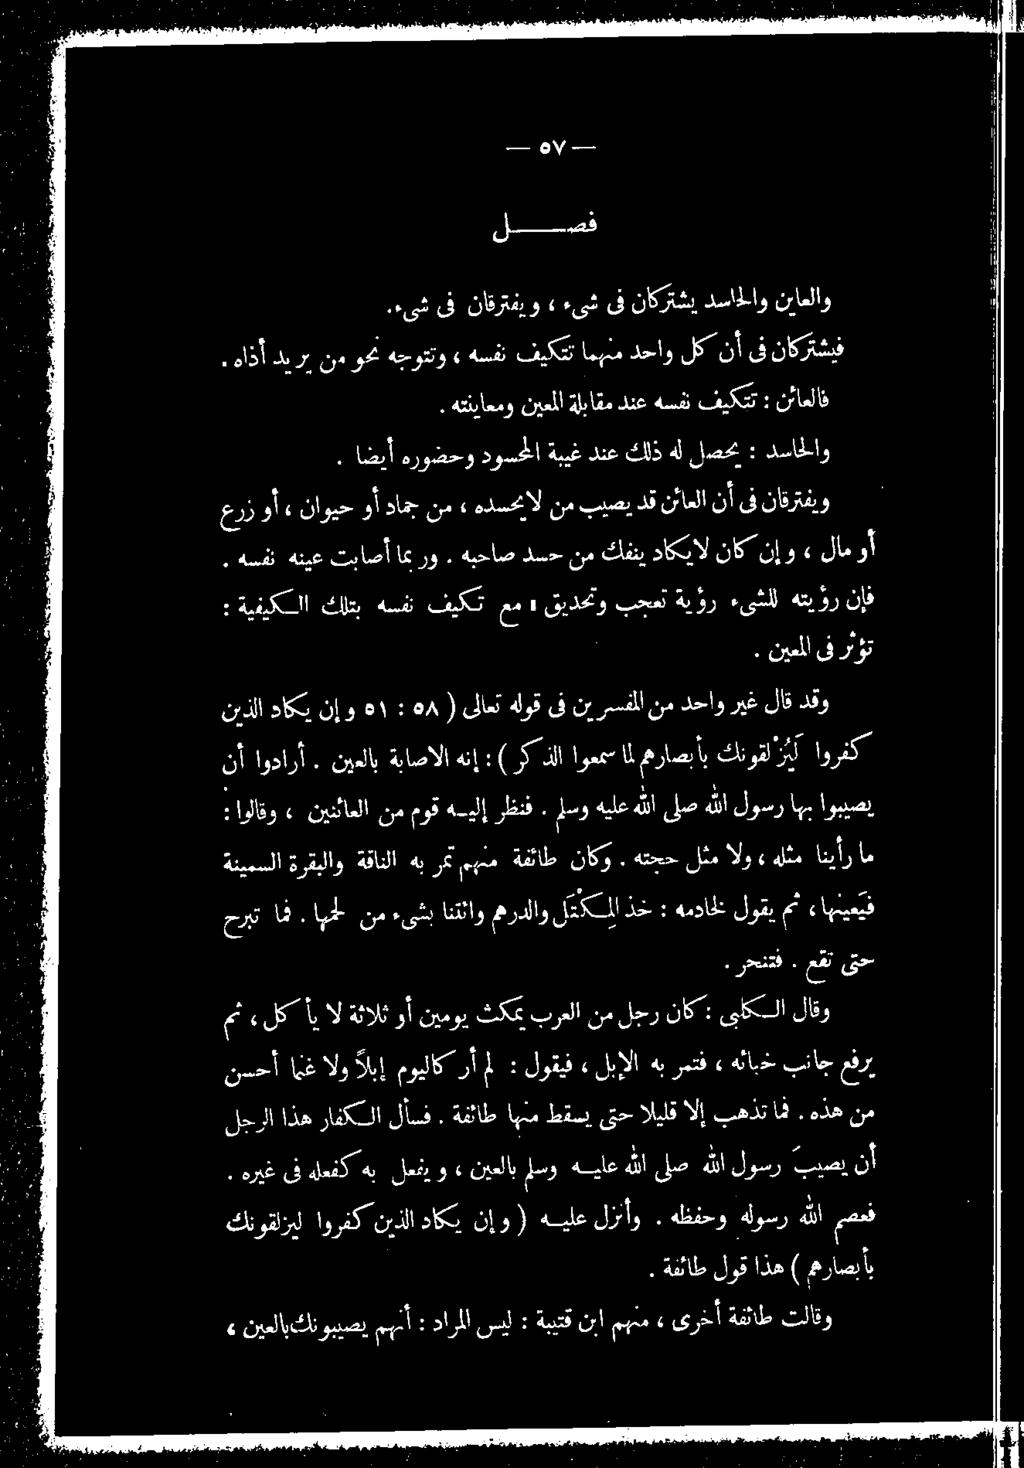 — ٥٧ —
فصــــل
والعاين والحاسد يشتركان فى شىء ، ويفترقان فى شىء.
فيشتركان فى أن كل واحد منهما تتكيف نفسه ، وتتوجه نحو من يريد أذاه .
فالعائن : تتكيف نفسه عند مقابلة المعين ومعاينته .
والحاسد : يحصل له ذلك عند غيبة المحسود وحضوره أيضا .
ويفترقان فى أن العائن قد يصيب من لايحسده ، من جماد أو حيوان ، أو زرع
أو مال ، وإن كان لايكاد ينفك من حسد صاحبه . وربما أصابت عينه نفسه .
فإن رؤيته للشىء رؤية تعجب وتحديق ، مع تكيف نفسه بتلك الـكيفية :
تؤثر فى المعين .
وقد قال غير واحد من المفسرين فى قوله تعالى ( ٥٨ : ٥١ وإن يكاد الذين
كفروا لَيُزْلقونك بأبصارهم لما سمعوا الذكر ) : إنه الاصابة بالعين . أرادوا أن
يصيبوا بها رسول الله صلى الله عليه وسلم . فنظر إليـه قوم من العائنين ، وقالوا :
ما رأينا مثله ، ولا مثل حجته . وكان طائفة منهم تمر به الناقة والبقرة السمينة
فيَعينها ، ثم يقول لخادمه : خذ المِـكْتَل والدرهم وائتنا بشىء من لحمها . فما تبرح
حتى تقع . فتنحر .
وقال الـكلبى : كان رجل من العرب يمكث يومين أو ثلاثة لا يأكل ، ثم
يرفع جانب خبائه ، فتمر به الإبل ، فيقول : لم أر كاليوم إبلاً ولا غنما أحسن
من هذه . فما تذهب إلا قليلا حتى يسقط منها طائفة . فسأل الـكفار هذا الرجل
أن يصيبَ رسول الله صلى الله عليـه وسلم بالعين ، ويفعل به كفعله فى غيره .
فعصم الله رسوله وحفظه . وأنزل عليـه ( وإن يكاد الذين كفروا ليزلقونك
بأبصارهم ) هذا قول طائفة .
وقالت طائفة أخرى ، منهم ابن قتيبة : ليس المراد : أنهم يصيبونك بالعين ،